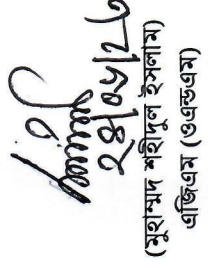 ২৪/০৮/২৬
(মুহাম্মদ শহীদুল ইসলাম)
এজিএম (ওএন্ডএম)